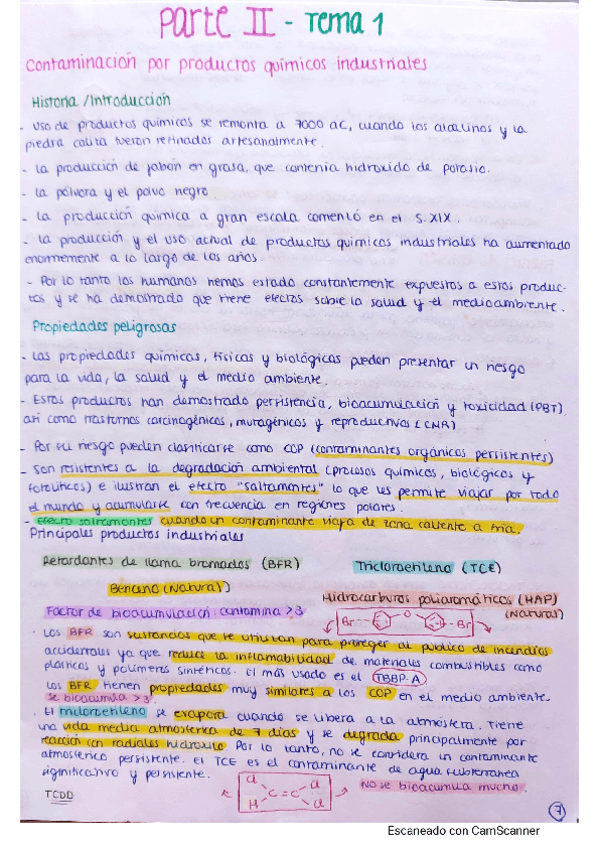 Parte II - Tema 1
Contaminación por productos químicos industriales
Historia /Introducción
- Uso de productos químicos se remonta a 7000 AC, cuando los alcalinos y la
piedra caliza fueron refinados artesanalmente.
- La producción de jabón en grasa, que contenía hidroxido de potasio.
- La pólvora y el polvo negro
- La producción química a gran escala comentó en el S. XIX.
- La producción y el uso actual de productos químicos industriales ha aumentado
enormemente a lo largo de los años.
- Por lo tanto los humanos hemos estado constantemente expuestos a estos produc-
tos y se ha demostrado que tiene efectos sobre la salud y el medioambiente.
Propiedades peligrosas
- Las propiedades químicas, físicas y biológicas pueden presentar un riesgo
para la vida, la salud y el medio ambiente.
- Estos productos han demostrado persistencia, bioacumulación y toxicidad (PBT)
así como trastornos carcinogénicos, mutagénicos y reproductivos (CMR)
- Por su riesgo pueden clasificarse como COP (contaminantes orgánicos persistentes)
- Son resistentes a la degradación ambiental (procesos químicos, biológicos y
fotolíticos) e ilustran el efecto "saltamontes" lo que les permite viajar por todo
el mundo y acumularse con frecuencia en regiones polares.
- Efecto saltamontes cuando un contaminante viaja de zona caliente a fria.
Principales productos industriales
Retardantes de llama bromados (BFR)
Tricloroetileno (TCE)
Benceno (Natural)
Hidrocarburos poliaromáticos (HAP)
(Natural)
Factor de bioacumulación: contamina >3
Br O Br
- Los BFR son sustancias que se utilizan para proteger al público de incendios
accidentales ya que reduce la inflamabilidad de materiales combustibles como
plásticos y polímeros sintéticos. El más usado es el TBBP-A
Los BFR tienen propiedades muy similares a los COP en el medio ambiente.
se bioacumula >3
- El tricloroetileno se evapora cuando se libera a la atmósfera. Tiene
una vida media atmosférica de 7 días y se degrada principalmente por
reacción con radiales hidroxilo Por lo tanto, no se considera un contaminante
atmosférico persistente. El TCE es el contaminante de agua subterranea
significativo y persistente.
No se bioacumula mucho.
TCDD
Cl Cl
C=C
H Cl
7
Escaneado con CamScanner